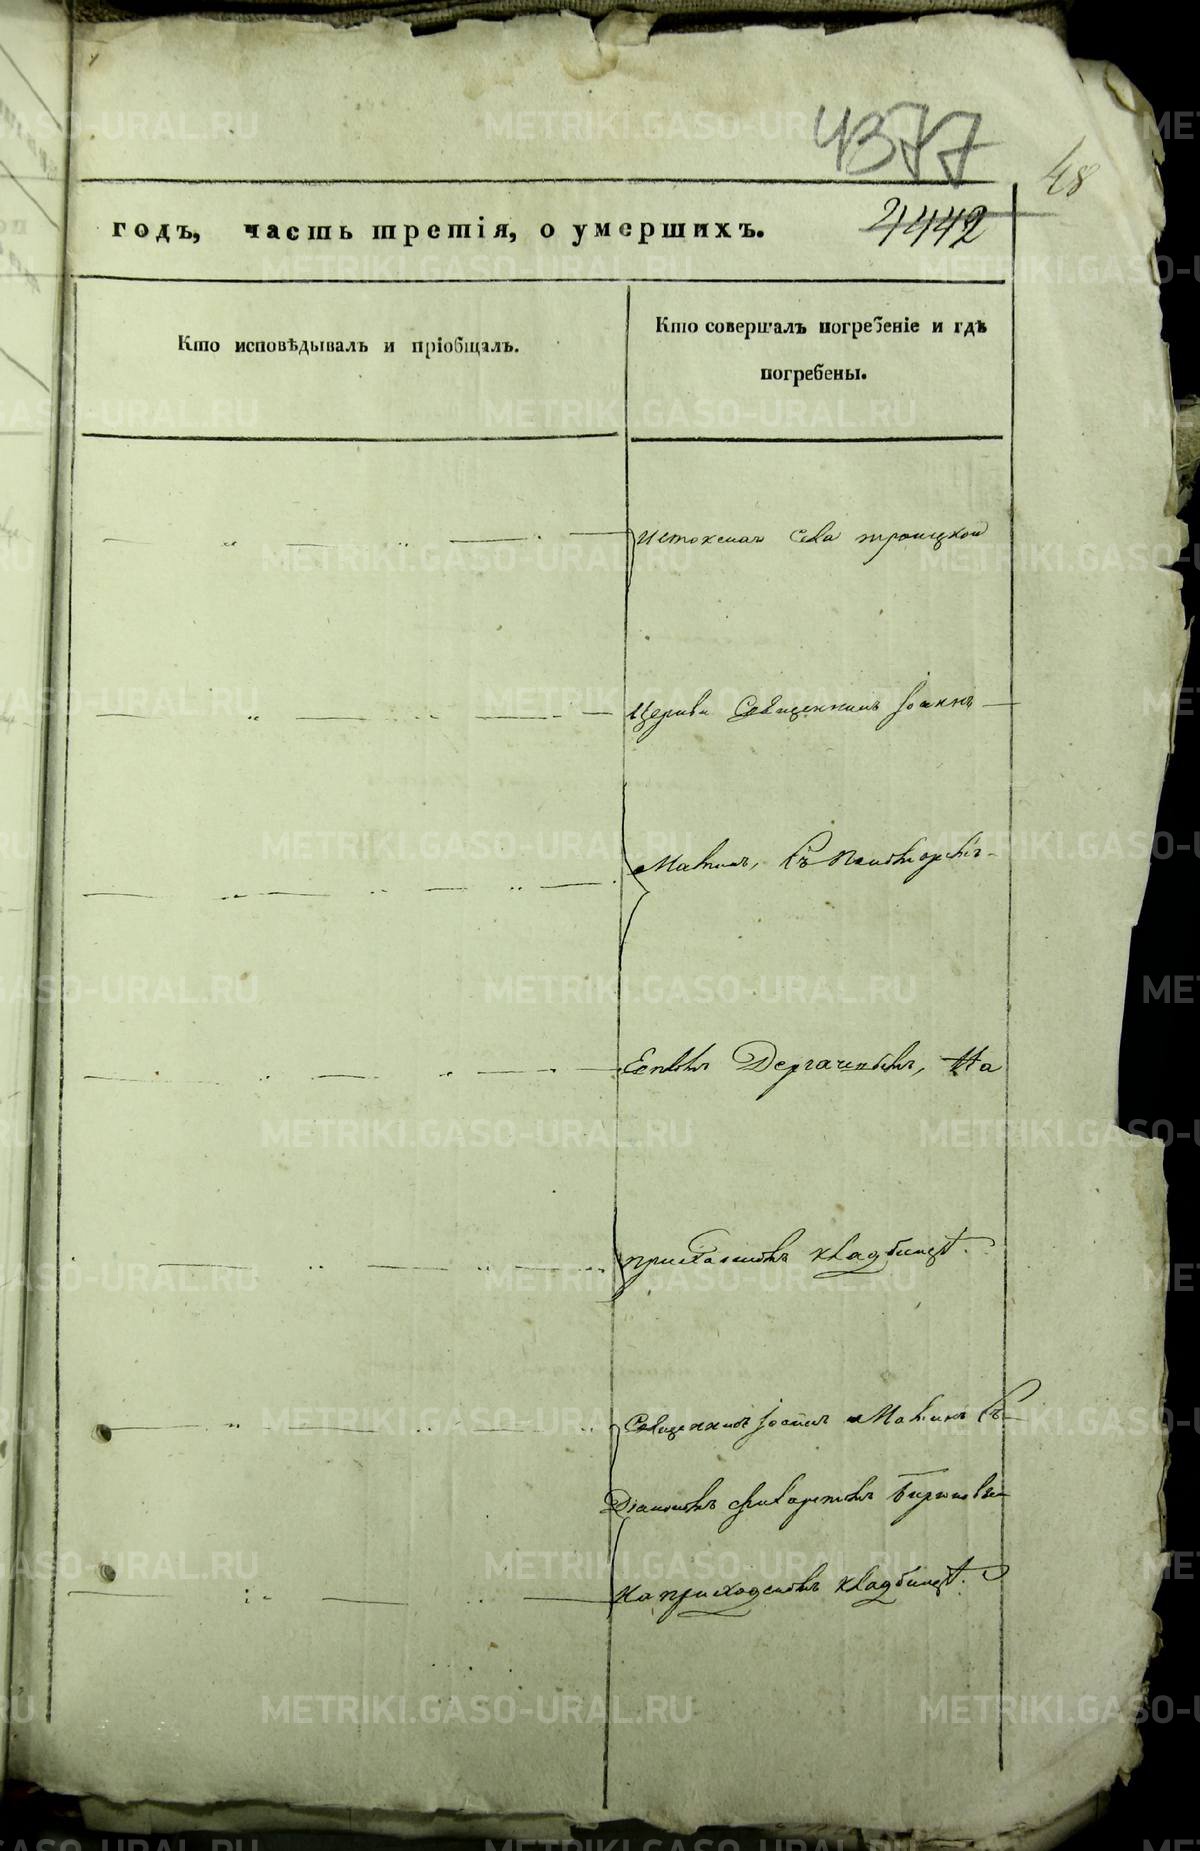 4377
48
годъ, часть третія, о умершихъ.
4442
Кто исповѣдывалъ и пріобщалъ.
Кто совершалъ погребеніе и гдѣ
погребены.
Истокскаго Села троицкой
Церкви Священникъ Іоаннъ
Макинъ, Съ
Дергачевымъ, На
приходскомъ кладбищѣ.
Священникъ Іоаннъ Макинъ Съ
Діакономъ
На приходскомъ кладбищѣ.
METRIKI.GASO-URAL.RU